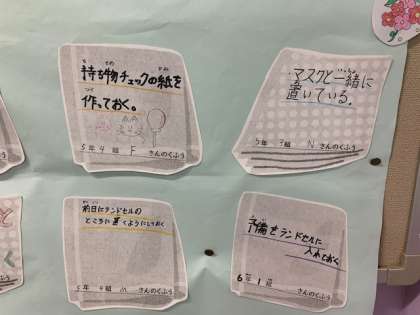 持ち物チェックの紙を
作っておく。
5年4組 F さんのくふう
マスクと一緒に
置いている。
5年3組 N さんのくふう
前日にランドセルの
ところに置くようにしておく
5年4組 M さんのくふう
予備をランドセルに
入れておく
6年1組 さんのくふう